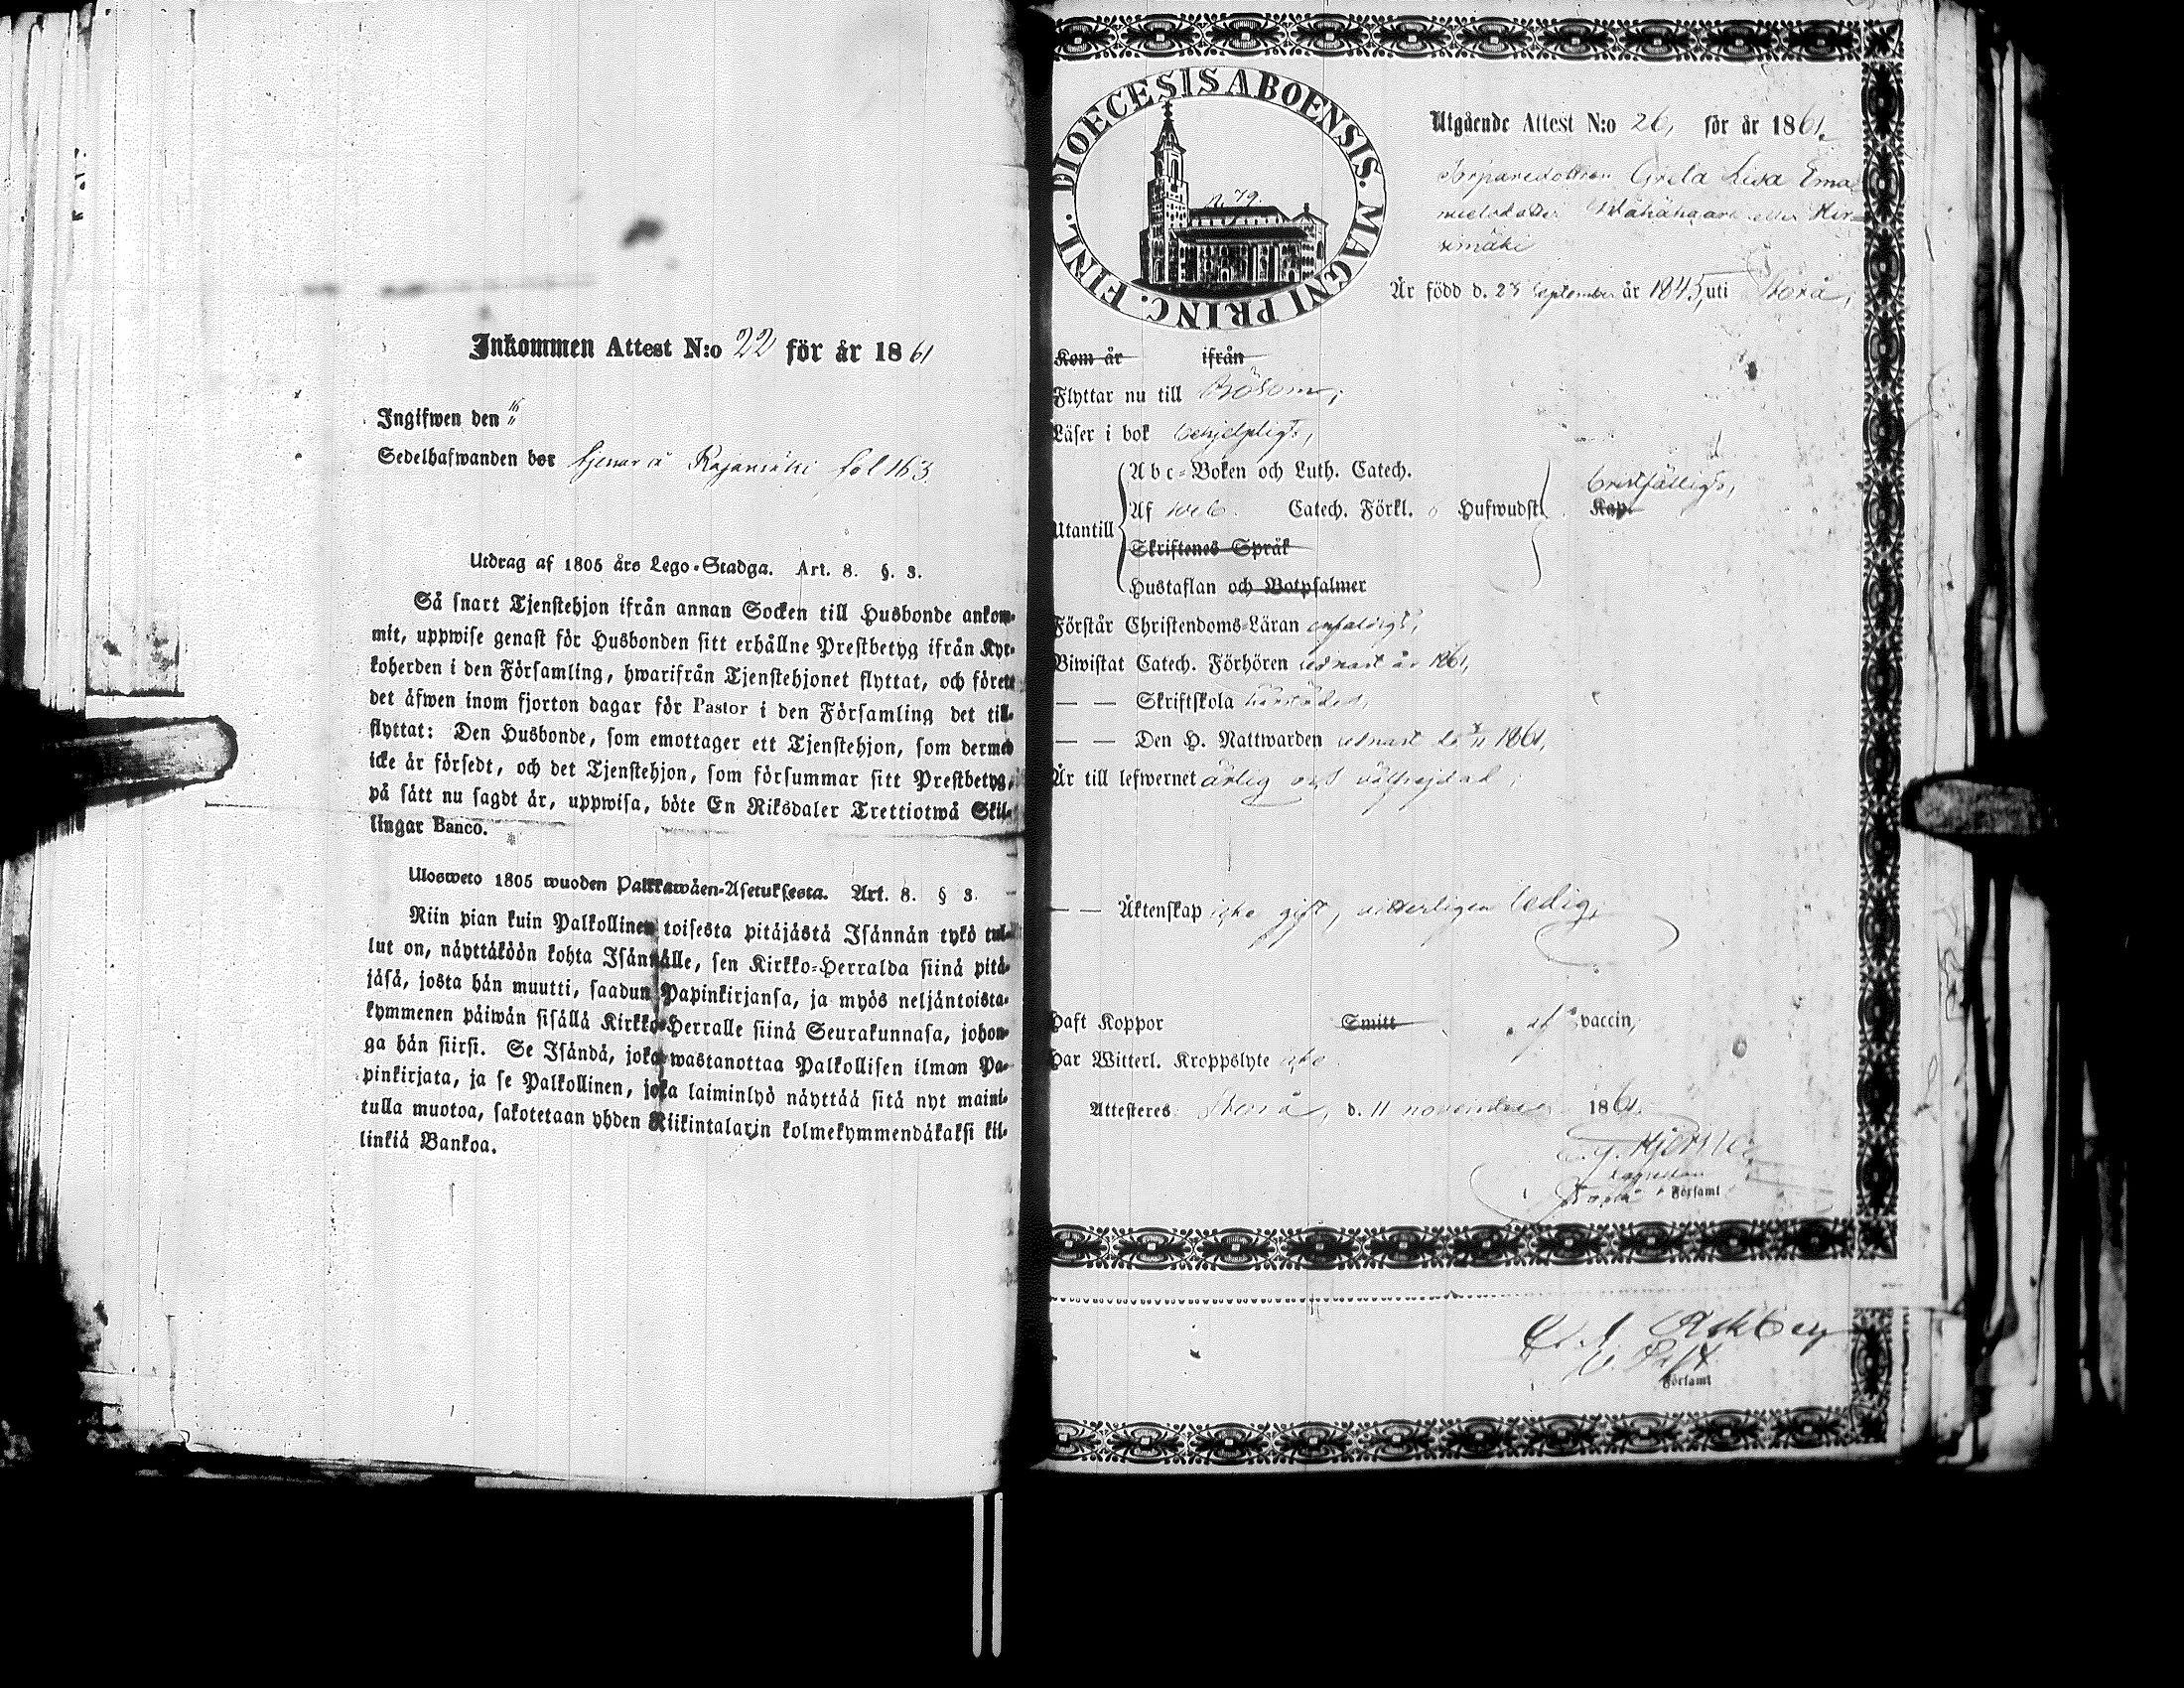 Inkommen Attest N:o 22 för år 1861
Ingifwen den 16/11
Sedelhafwanden bor tjenar å Rajamäki fol 163.
Utdrag af 1805 års Lego-Stadga. Art. 8. §. 3.
Så snart Tjenstehjon ifrån annan Socken till Husbonde ankom-
mit, uppwise genast för Husbonden sitt erhållne Prestbetyg ifrån Kyr-
koherden i den Församling, hwarifrån Tjenstehjonet flyttat, och förete
det äfwen inom fjorton dagar för Pastor i den Församling det till-
flyttat: Den Husbonde, som emottager ett Tjenstehjon, som dermed
icke är försedt, och det Tjenstehjon, som försummar sitt Prestbetyg,
på sätt nu sagdt är, uppwisa, böte En Riksdaler Trettiotwå Skil-
lingar Banco.
Ulosweto 1805 wuoden Palkkawäen-Asetuksesta. Art. 8. § 3.
Niin pian kuin Palkollinen toisesta pitäjästä Isännän tykö tul-
lut on, näyttäköön kohta Isännälle, sen Kirkko-Herralda siinä pitä-
jäsä, josta hän muutti, saadun Papinkirjansa, ja myös neljäntoista-
kymmenen päiwän sisällä Kirkko-Herralle siinä Seurakunnasa, johon-
ga hän siirsi. Se Isändä, joka wastanottaa Palkollisen ilman Pa-
pinkirjata, ja se Palkollinen, joka laiminlyö näyttää sitä nyt maini-
tulla muotoa, sakotetaan yhden Riikintalarin kolmekymmendäkaksi kil-
linkiä Bankoa.
DIOECESIS ABOENSIS. MAGNI PRINC. FINL.
N. 79.
Utgående Attest N:o 26, för år 1861.
Torparedottren Greta Lisa Ema-
nuelsdotter eller Hir-
simäki
Är född d. 28 September år 1845, uti Storå,
Kom år ifrån
Flyttar nu till
Läser i bok behjelpligt,
Utantill
Abc-Boken och Luth. Catech.
Af Catech. Förkl. Hufwudst. Kap.
bristfälligt,
Skriftenes Språk
Hustaflan och Botpsalmer
Förstår Christendoms-Läran enfaldigt,
Biwistat Catech. Förhören sednast år 1861,
— — Skriftskola härstädes,
— — Den H. Nattwarden sednast d. 1861,
Är till lefwernet ärlig och välfrejdad;
— — Äktenskap icke gift, witterligen ledig,
Haft Koppor Smitt af vaccin,
Har Witterl. Kroppslyte icke.
Attesteres Storå, d. 11 november 1861.
Storå Församl
Församl